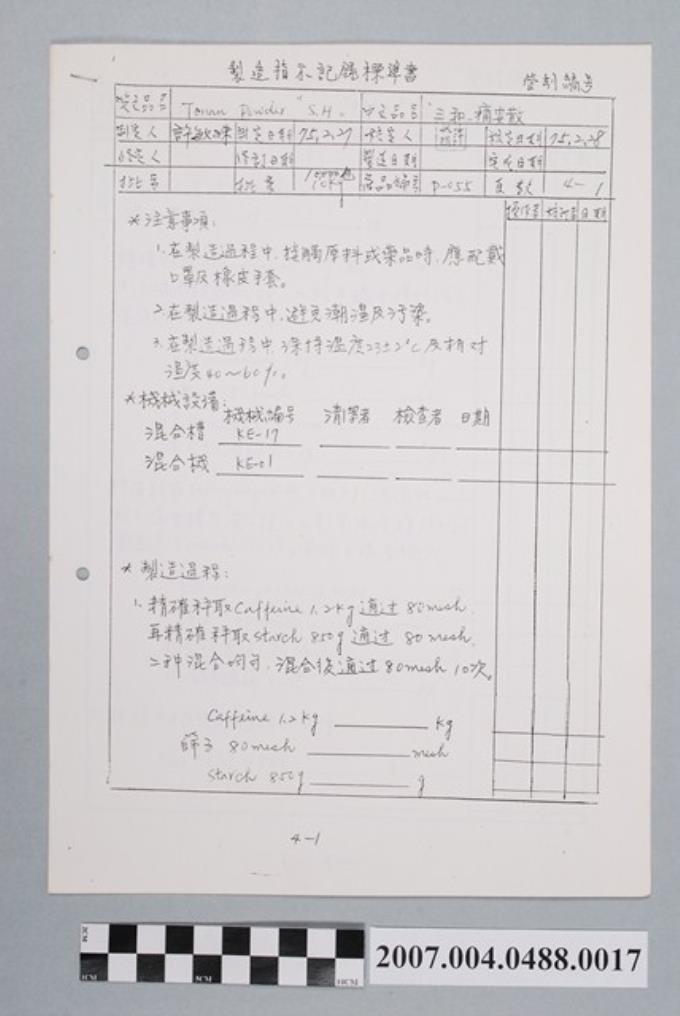 製造指示記錄標準書
管制編號
英文品名 "Tonan Powder" S.H. 中文品名 "三和"痛安散
制定人 制定日期 75,2,27 核定人 核定日期 75,2,28
修定人 修訂日期 製造日期 完成日期
批號 批量 商品編號 P-055 頁數 4-1
操作者 核對者 日期
*注意事項:
1.在製造過程中,接觸原料或藥品時,應配戴
口罩及橡皮手套。
2.在製造過程中,避免潮溼及污染。
3.在製造過程中,保持溫度23±2°C及相对
溼度40~60%。
*機械設備:
機械編號 清潔者 檢查者 日期
混合槽 KE-17
混合機 KE-01
*製造過程:
1.精確秤取Caffeine 1.2kg通过80mesh,
再精確秤取starch 850g通过80mesh,
二种混合均勻,混合後通过80mesh 10次。
Caffeine 1.2kg kg
篩子 80mesh mesh
starch 850g g
4-1
2007.004.0488.0017